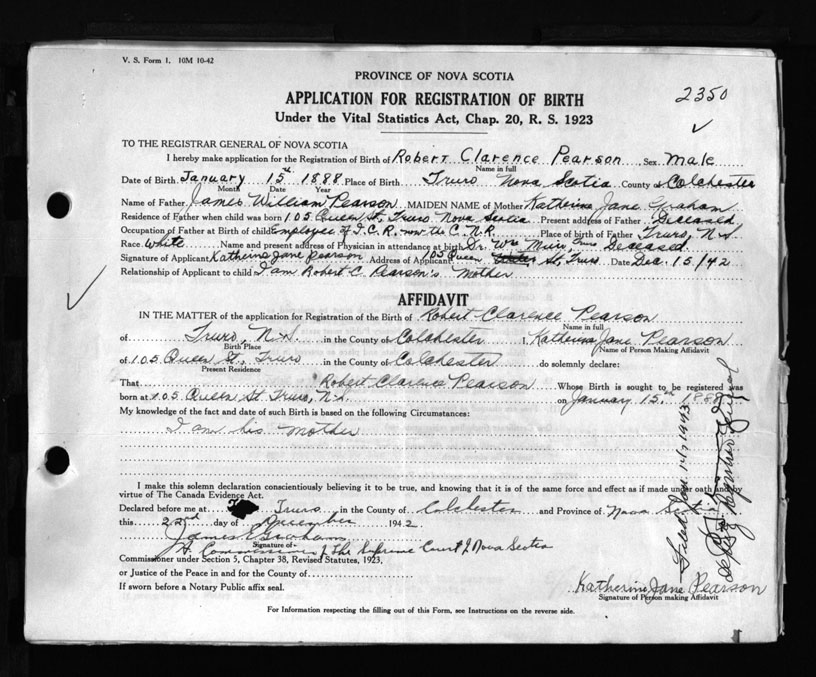 V. S. Form 1. 10M 10-42
PROVINCE OF NOVA SCOTIA
2350
APPLICATION FOR REGISTRATION OF BIRTH
Under the Vital Statistics Act, Chap. 20, R. S. 1923
TO THE REGISTRAR GENERAL OF NOVA SCOTIA
I hereby make application for the Registration of Birth of Robert Clarence Pearson Sex Male
Name in full
Date of Birth January 15th 1888 Place of Birth Truro Nova Scotia County of Colchester
Month Date Year
Name of Father James William Pearson MAIDEN NAME of Mother Katherine Jane Graham
Residence of Father when child was born 105 Queen St, Truro Nova Scotia Present address of Father Deceased
Occupation of Father at Birth of child Employee of I.C.R. now the C.N.R. Place of birth of Father Truro, N.S.
Race White Name and present address of Physician in attendance at birth Dr. Wm Muir, Truro Deceased.
Signature of Applicant Katherine Jane Pearson Address of Applicant 105 Queen St, Truro Date Dec. 15/42
Relationship of Applicant to child I am Robert C. Pearson's Mother
AFFIDAVIT
IN THE MATTER of the application for Registration of the Birth of Robert Clarence Pearson
Name in full
of Truro, N.S. in the County of Colchester I, Katherine Jane Pearson
Birth Place Name of Person Making Affidavit
of 105 Queen St, Truro in the County of Colchester do solemnly declare:
Present Residence
That Robert Clarence Pearson Whose Birth is sought to be registered was
born at 105 Queen St Truro, N.S. on January 15th 1888
My knowledge of the fact and date of such Birth is based on the following Circumstances:
I am his mother
I make this solemn declaration conscientiously believing it to be true, and knowing that it is of the same force and effect as if made under oath and by
virtue of The Canada Evidence Act.
Declared before me at Truro in the County of Colchester and Province of Nova Scotia
this 22nd day of December 1942
James Graham
Signature of
A Commissioner of The Supreme Court of Nova Scotia
Commissioner under Section 5, Chapter 38, Revised Statutes, 1923,
or Justice of the Peace in and for the County of
If sworn before a Notary Public affix seal.
Katherine Jane Pearson
Signature of Person making Affidavit
For Information respecting the filling out of this Form, see Instructions on the reverse side.
Filed 14, 1943